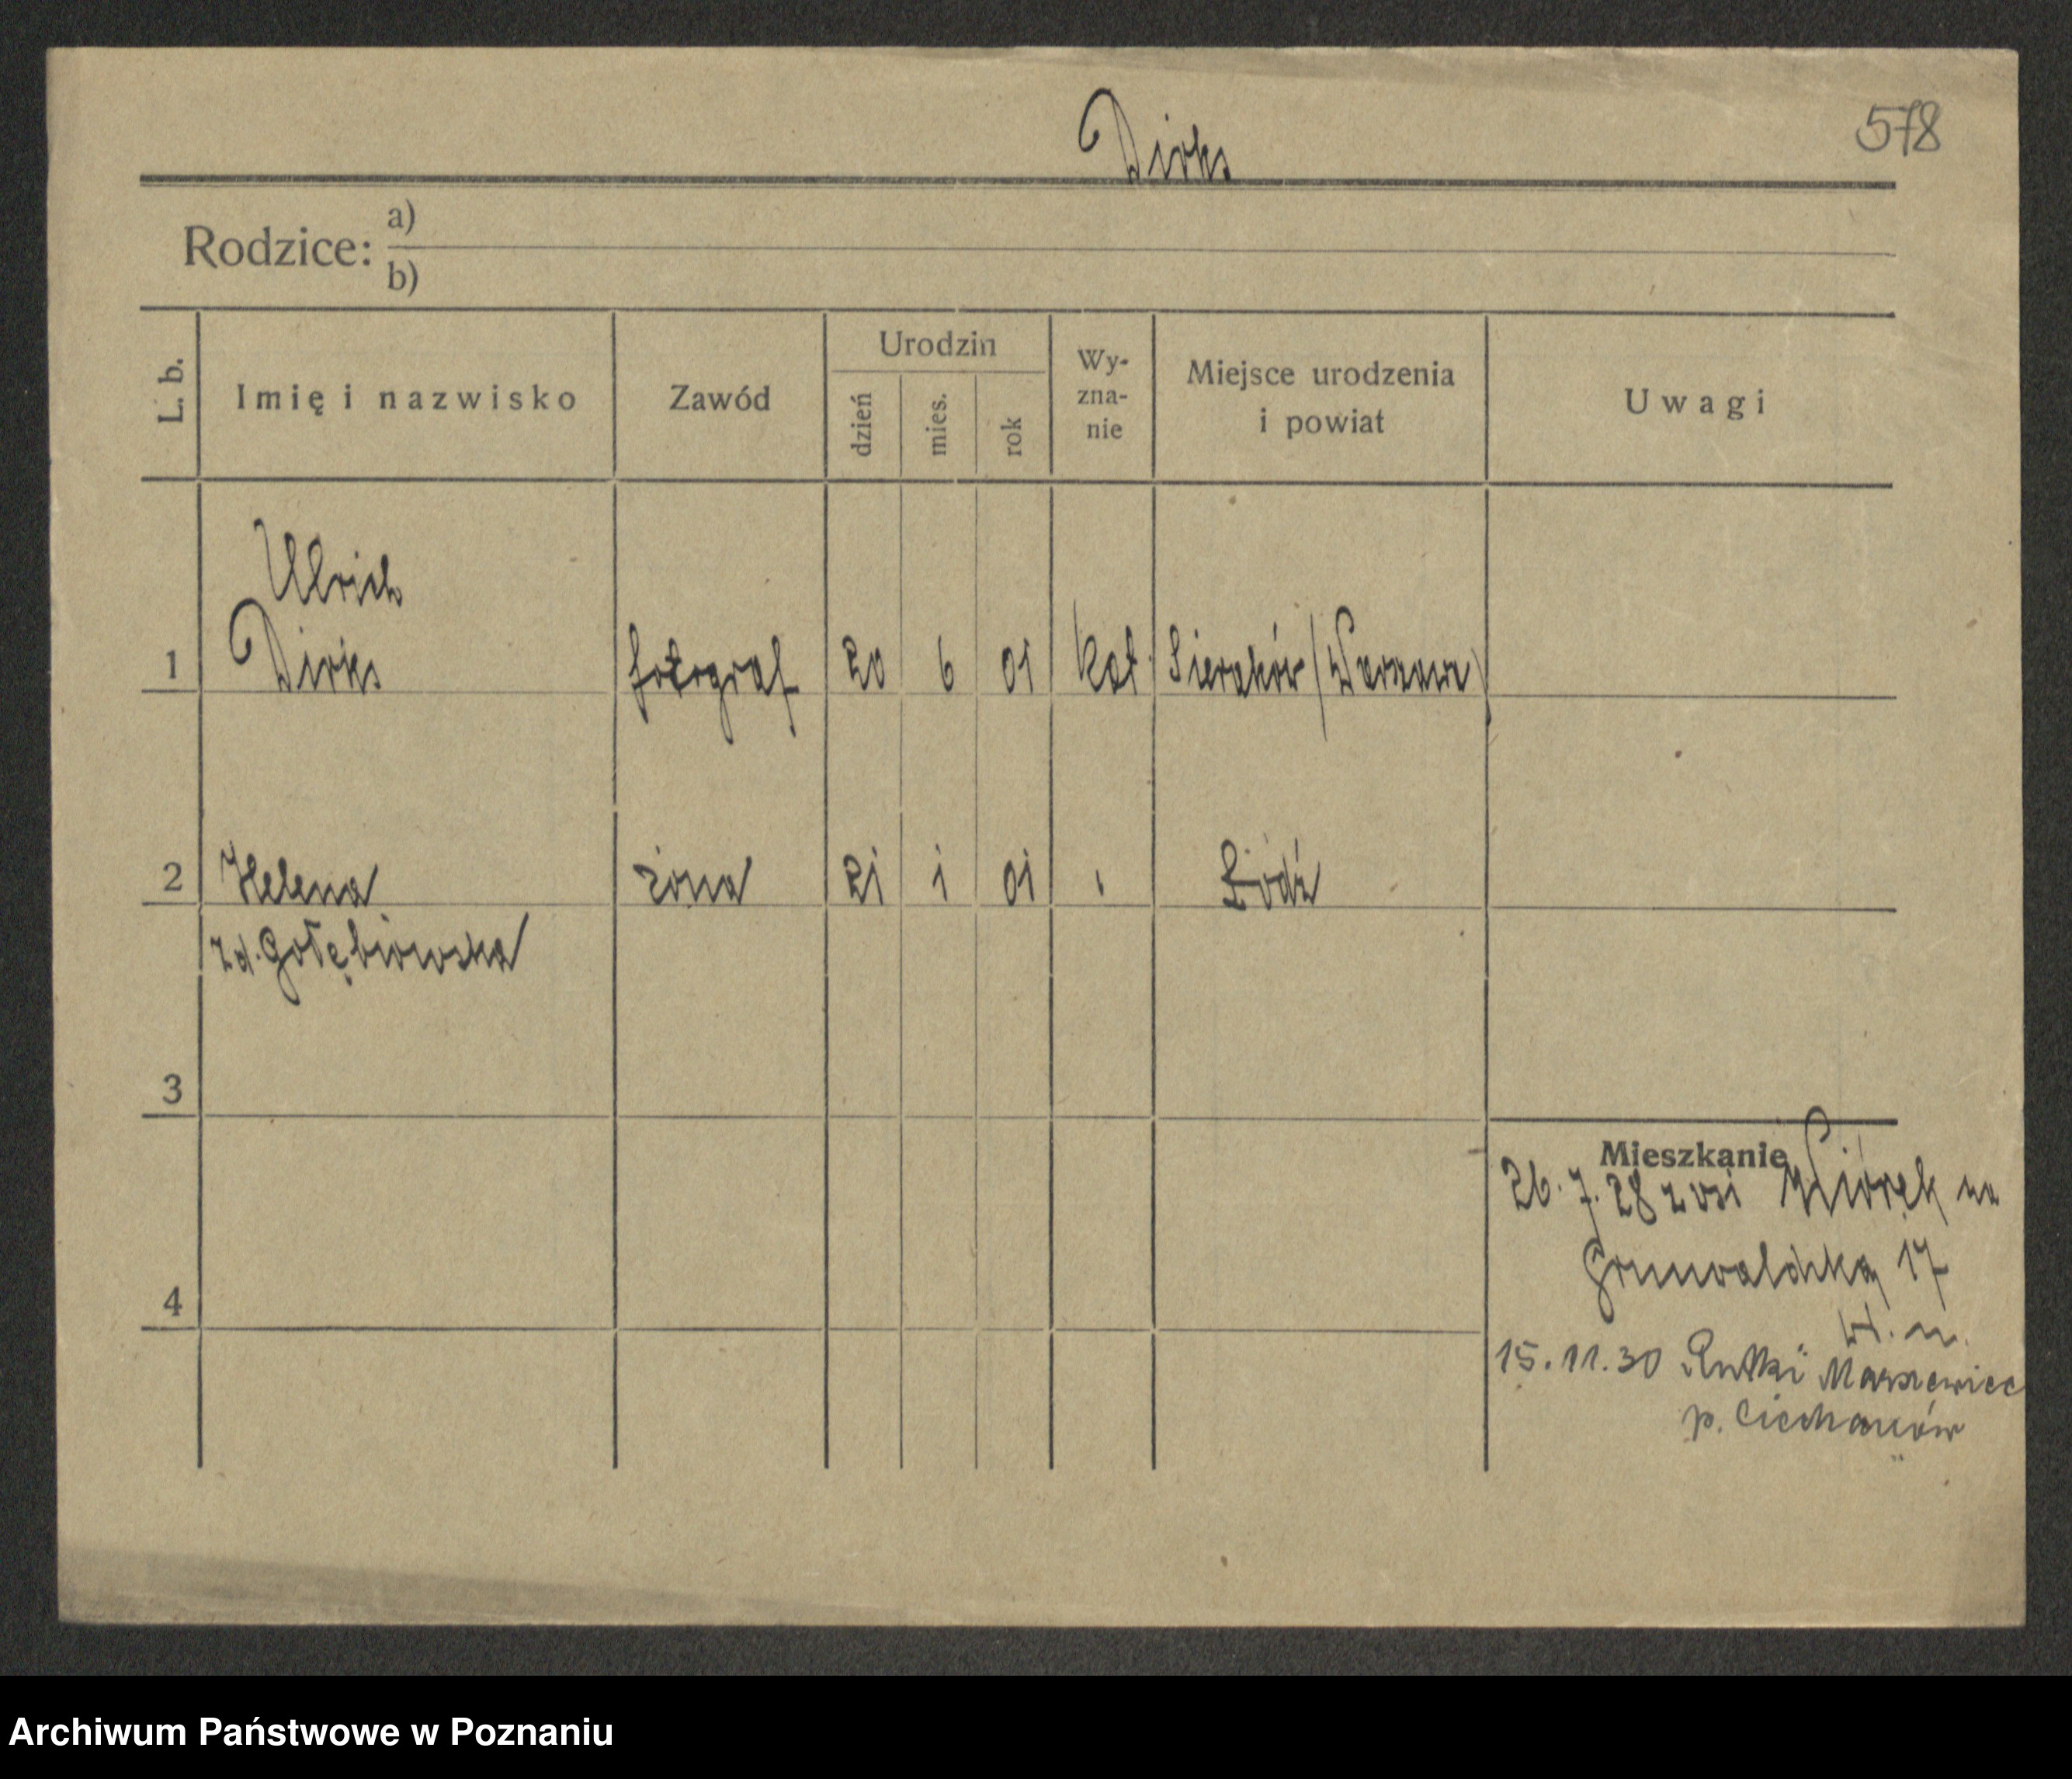 Dirks
578
Rodzice: a)
b)
L. b. Imię i nazwisko Zawód Urodzin dzień mies. rok Wy-zna-nie Miejsce urodzenia i powiat Uwagi
Ulrich
1 Dirks fotograf 20 6 01 kat. Sieraków (Warszawa)
2 Helena żona 21 1 01 " Łódź
zd. Gołębiowska
3
Mieszkanie
26.7.28 z wsi Wiórek na
Grunwaldzką 17
4
15.11.30 Rutki
p. Ciechanów
Archiwum Państwowe w Poznaniu